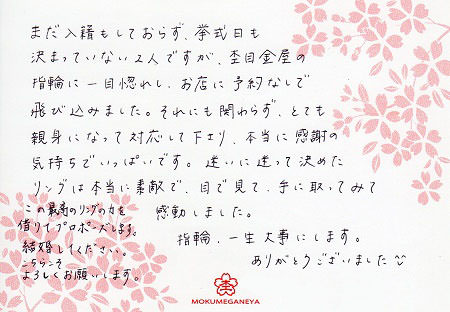 まだ入籍もしておらず、挙式日も
決まっていない2人ですが、杢目金屋の
指輪に一目惚れし、お店に予約なしで
飛び込みました。それにも関わらず、とても
親身になって対応して下さり、本当に感謝の
気持ちでいっぱいです。迷いに迷って決めた
リングは本当に素敵で、目で見て、手に取ってみて
感動しました。
指輪、一生大事にします。
ありがとうございました
この最高のリングの力を
借りてプロポーズします。
結婚してください。
こちらこそ
よろしくお願いします。
MOKUMEGANEYA